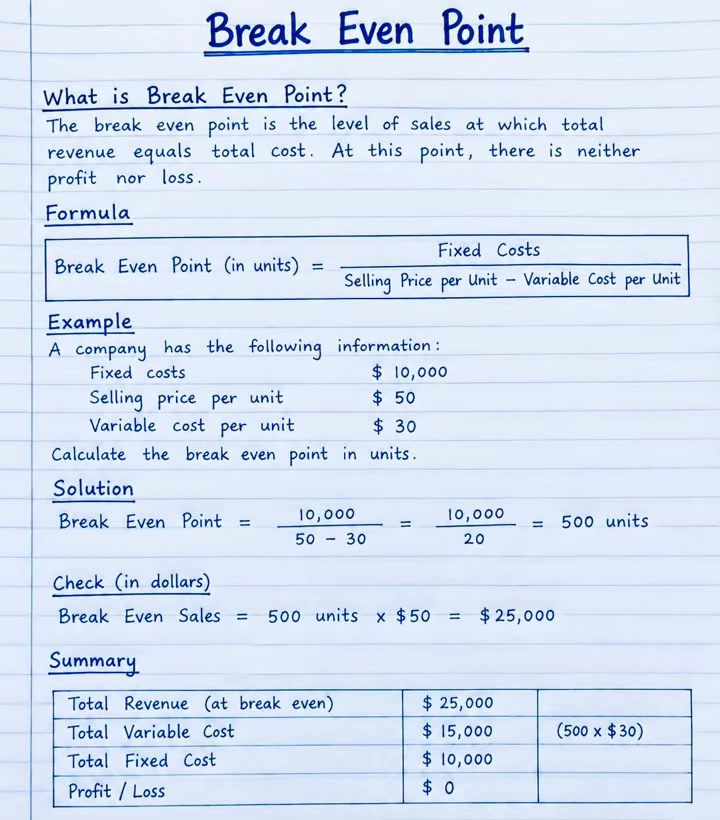 Break Even Point
What is Break Even Point?
The break even point is the level of sales at which total
revenue equals total cost. At this point, there is neither
profit nor loss.
Formula
Break Even Point (in units) = Fixed Costs
Selling Price per Unit – Variable Cost per Unit
Example
A company has the following information:
Fixed costs $ 10,000
Selling price per unit $ 50
Variable cost per unit $ 30
Calculate the break even point in units.
Solution
Break Even Point = 10,000 = 10,000 = 500 units
50 – 30 20
Check (in dollars)
Break Even Sales = 500 units x $50 = $25,000
Summary
Total Revenue (at break even) $ 25,000
Total Variable Cost $ 15,000 (500 x $30)
Total Fixed Cost $ 10,000
Profit / Loss $ 0